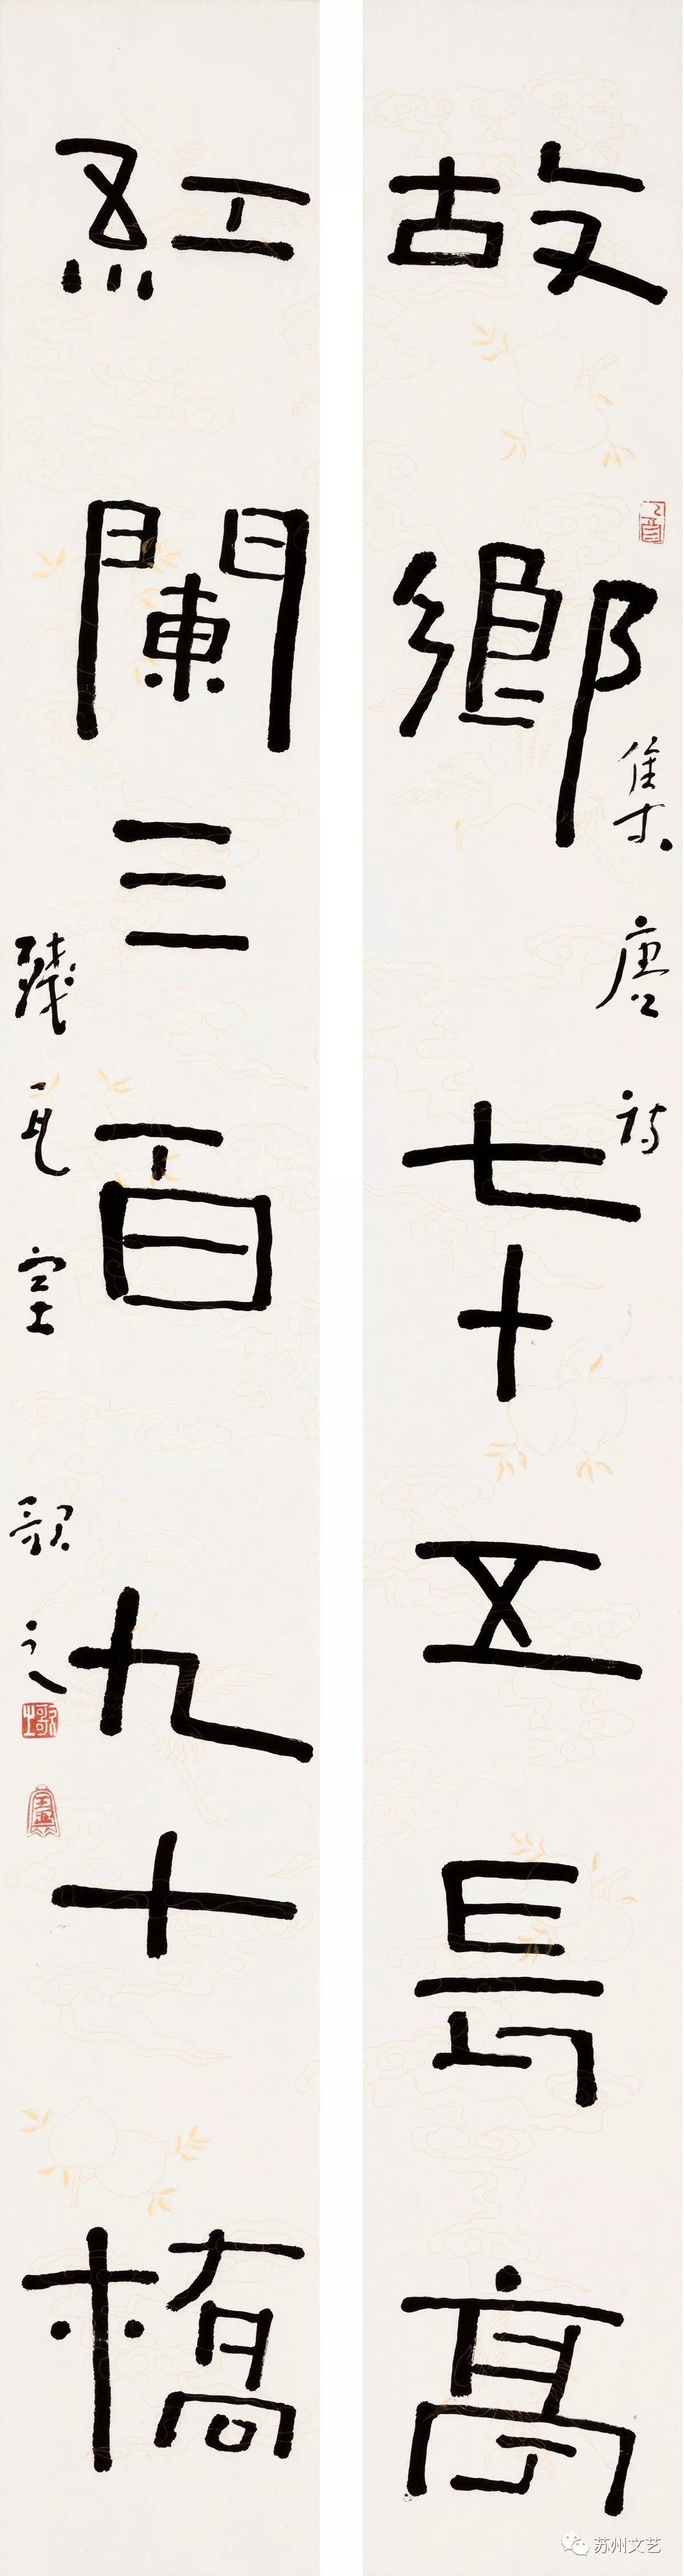 故鄉七十五長亭
集唐詩
紅闌三百九十橋
殘瓦室
歌之
苏州文艺